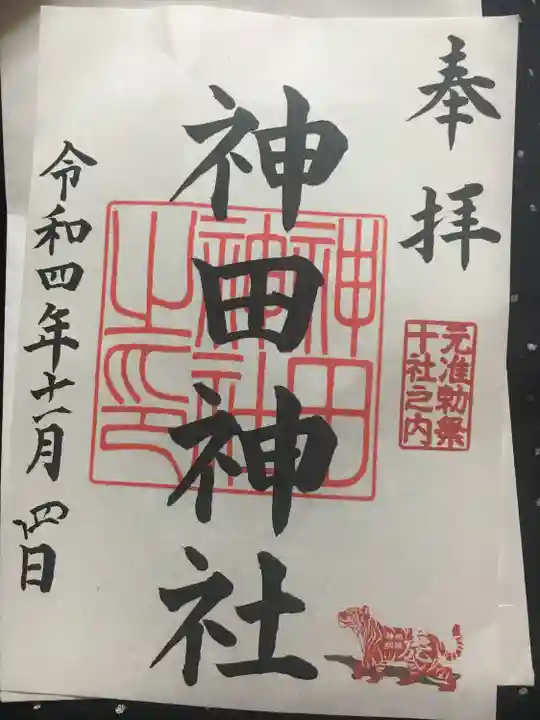 奉拝
元准勅祭
十社之内
神田神社
神田
神社
之印
令和四年十一月四日